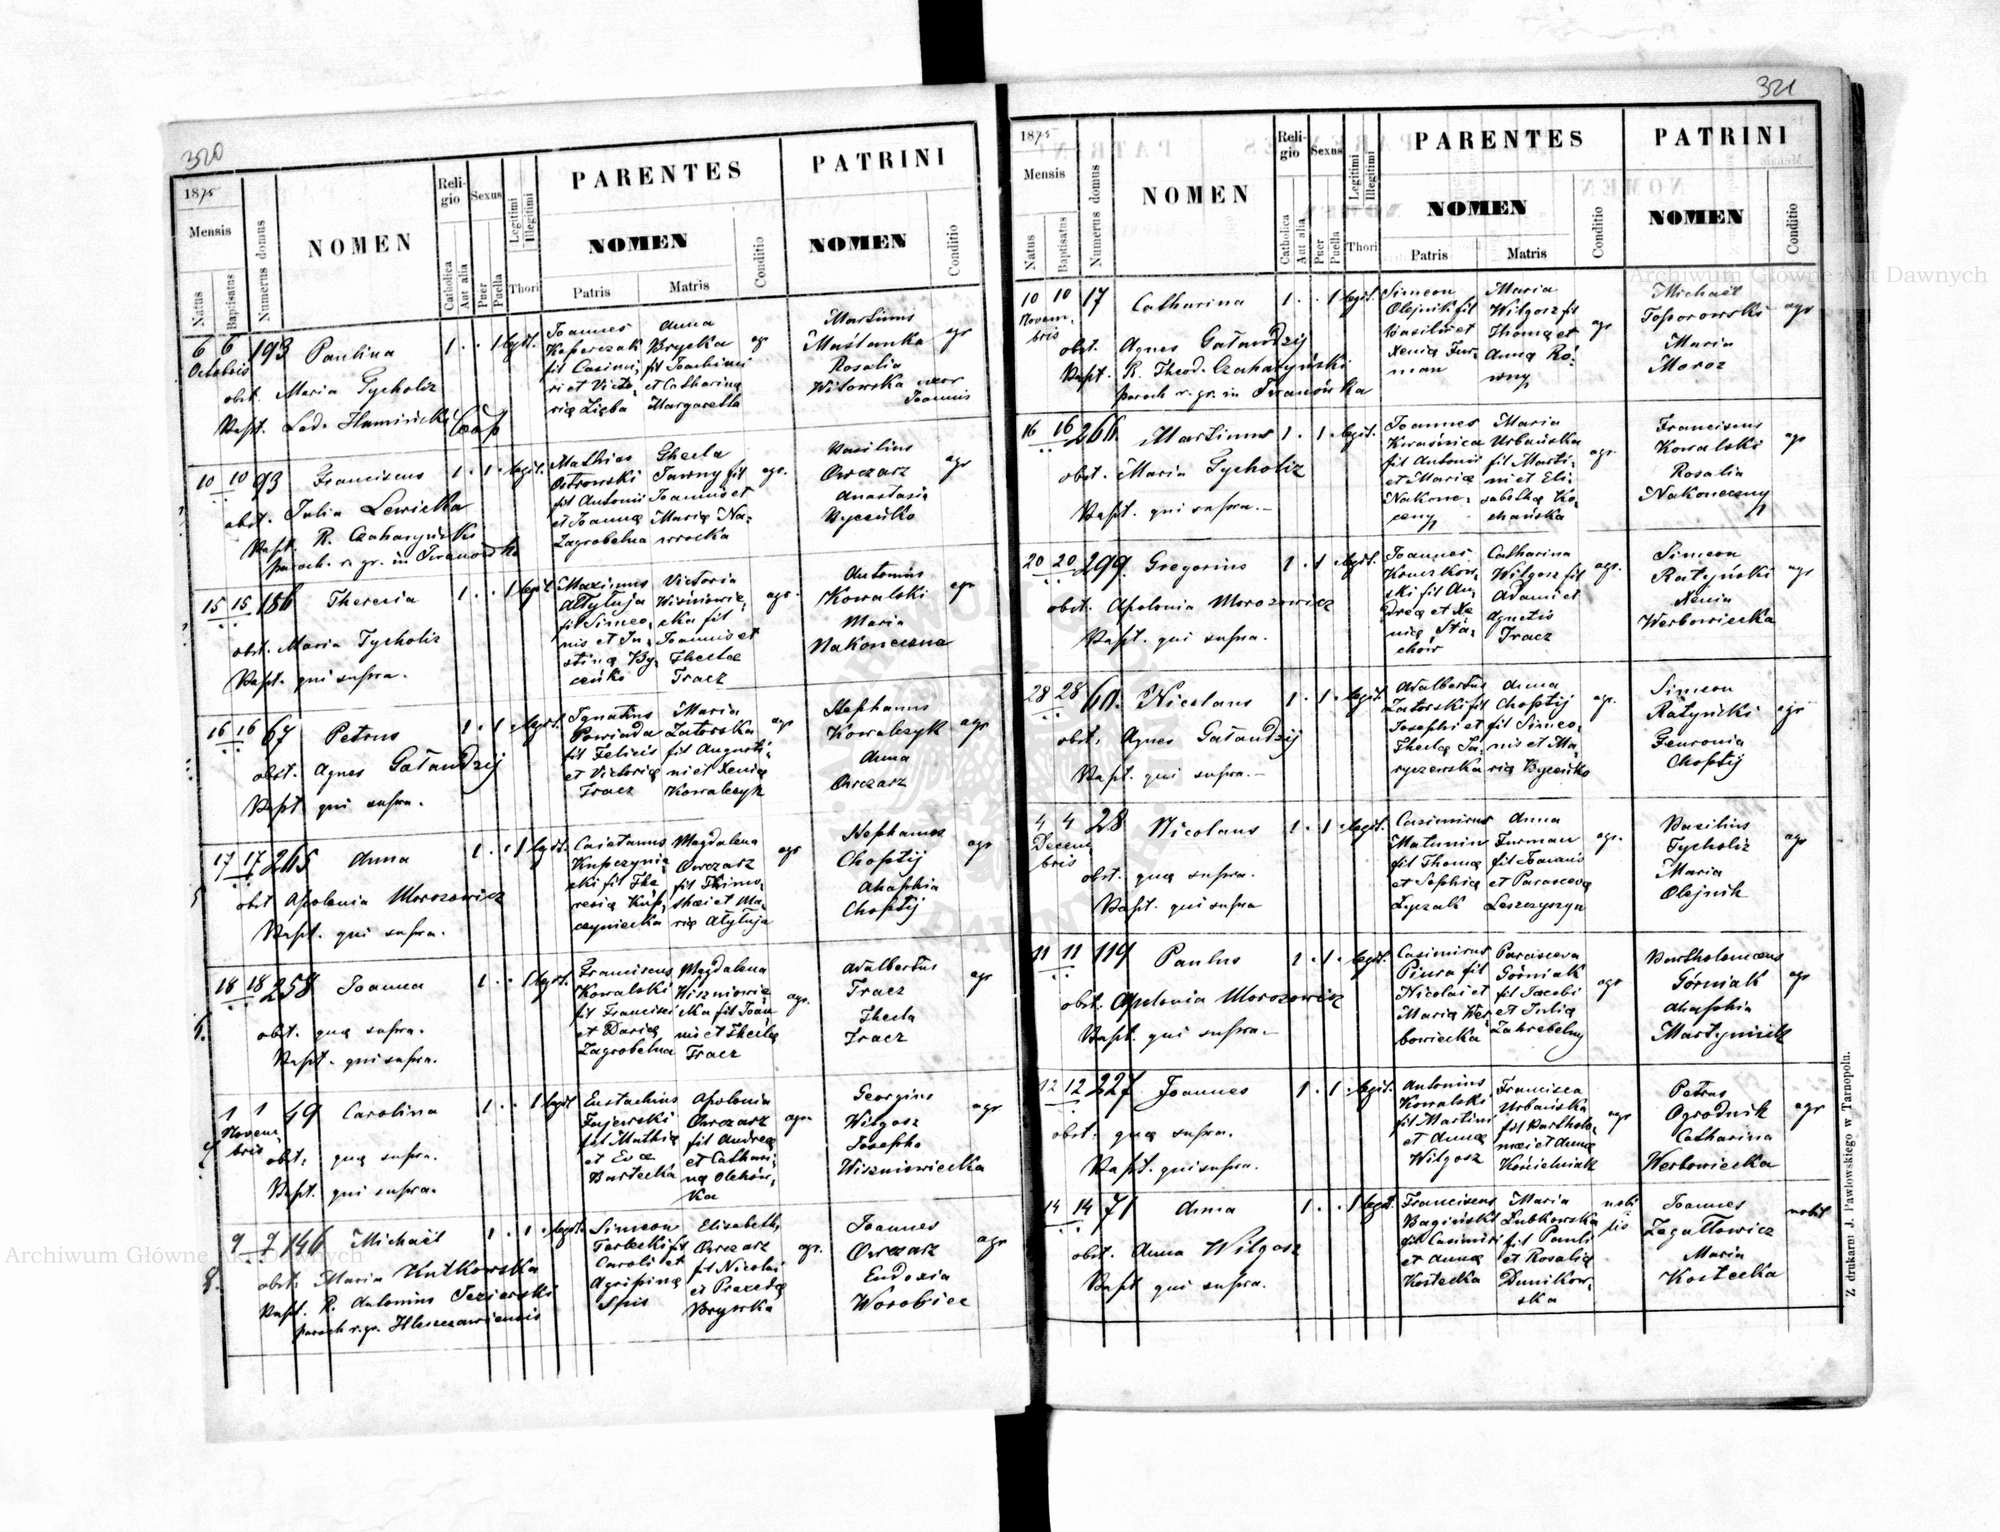 320
1875
Mensis
Natus
Baptisatus
Numerus domus
NOMEN
Religio
Catholica
Aut alia
Sexus
Puer
Puella
Legitimi
Illegitimi
Thori
PARENTES
NOMEN
Patris
Matris
Conditio
PATRINI
NOMEN
Conditio
6 6 193 Paulina 1 . . 1 legit.
Octobris
obst. Maria Tycholiz
Bapt. Lad. Huminicki Coop
Joannes
Kasperczak
fil Casimi-
ri et Victo-
ria Lięba
Anna
Brycka
fil Joachimi
et Catharina
Margaretta
agr
Martinus
Muślanka
Rosalia
Witowska uxor
Joannis
agr
10 10 93 Franciscus 1 . 1 . legit.
obst. Julia Lewicka
Bapt. R. Czaharyński
paroch. r. gr. in Iwanówka
Mathias
Ostrowski
fil Antonii
et Joanna
Zagrobelna
Thecla
Tarny fil
Joannis et
Maria Na-
wrocka
agr.
Basilius
Owczarz
Anastasia
Byczuko
agr
15 15 186 Theresia 1 . . 1 legit
obst. Maria Tycholiz
Bapt. qui supra.
Maximus
Atytuja
fil Simeo-
nis et Ju-
stina By-
czuko
Victoria
Wiśniowie-
cka fil
Joannis et
Thecla
Tracz
agr.
Antonius
Kowalski
Maria
Nakoneczna
agr
16 16 67 Petrus 1 . 1 . legit.
obst. Agnes Gałandzij
Bapt qui supra.
Ignatius
Powiada
fil Felicis
et Victoria
Tracz
Maria
Zatorska
fil Augusti-
ni et Xenia
Kowalczyk
agr
Stephanus
Kowalczyk
Anna
Owczarz
agr
17 17 265 Anna 1 . . 1 legit.
obst Apolonia Morozowicz
Bapt. qui supra.
Caietanus
Kupczyni-
cki fil The-
resia Kup-
czyniecka
Magdalena
Owczarz
fil Thimo-
thei et Ma-
ria Atytuja
agr
Stephanus
Choptij
Ahaphia
Choptij
agr
18 18 258 Joanna 1 . . 1 legit.
obst. qua supra.
Bapt. qui supra.
Franciscus
Kowalski
fil Francisci
et Daria
Zagrobelna
Magdalena
Wiszniowie
cka fil Joan-
nis et Thecla
Tracz
agr.
Adalbertus
Tracz
Thecla
Tracz
agr
1 1 49 Carolina 1 . . 1 legit
Novem-
bris
obst. qua supra.
Bapt. qui supra.
Eustachius
Zujewski
fil Mathia
et Eva
Burtecka
Apolonia
Owczarz
fil Andrea
et Cathari-
na Olchow-
ka
agr.
Georgius
Wilgosz
Josepha
Wiszniowiecka
agr
9 9 146 Michael 1 . 1 . legit.
obst. Maria Kutkowska
Bapt. R. Antonius Jezierski
paroch r. gr. Hleszczawiensis
Simeon
Tarlecki fil
Caroli et
Agripina
Spis
Elisabeth
Owczarz
fil Nicolai
et Praxeda
Brywka
agr.
Joannes
Owczarz
Eudoxia
Worobiec
agr
321
1875
Mensis
Natus
Baptisatus
Numerus domus
NOMEN
Religio
Catholica
Aut alia
Sexus
Puer
Puella
Legitimi
Illegitimi
Thori
PARENTES
NOMEN
Patris
Matris
Conditio
PATRINI
NOMEN
Conditio
10 10 17 Catharina 1 . . 1 legit.
Novem-
bris
obst. Agnes Gałandzij
Bapt. R. Theod. Czaharyński
paroch r. gr. in Iwanówka
Simeon
Olejnik fil
Basilii et
Xenia Fur-
man
Maria
Wilgosz fil
Thoma et
Anna Ró-
wny
agr
Michael
Toporowski
Maria
Moroz
agr
16 16 266 Martinus 1 . 1 . legit.
obst. Maria Tycholiz
Bapt. qui supra.-
Joannes
Kwaśnica
fil Antonii
et Maria
Nakone-
czny
Maria
Urbańska
fil Marti-
ni et Eli-
sabetha Ko-
chańska
agr
Franciscus
Kowalski
Rosalia
Nakoneczny
agr
20 20 299. Gregorius 1 . 1 . legit.
obst. Apolonia Morozowicz
Bapt. qui supra.
Joannes
Kruczkow-
ski fil An-
drea et Xe-
nia Stá-
chow
Catharina
Wilgosz fil
Adami et
Agnetis
Tracz
agr.
Simeon
Ratyński
Xenia
Werbowiecka
agr
28 28 60. Nicolaus 1 . 1 . legit.
obst. Agnes Gałandzij
Bapt. qui supra.-
Adalbertus
Zatorski fil
Josephi et
Thecla Ja-
ryczewska
Anna
Choptij
fil Simeo-
nis et Ma-
ria Byczuko
agr.
Simeon
Ratyński
Feuronia
Choptij
agr
4 4 28 Nicolaus 1 . 1 . legit.
Decem-
bris
obst. qua supra.
Bapt. qui supra
Casimirus
Matunin
fil Thoma
et Sophia
Łyczak
Anna
Furman
fil Joannis
et Parasceva
Leszczyszyn
agr.
Basilius
Tycholiz
Maria
Olejnik
agr
11 11 119 Paulus 1 . 1 . legit.
obst. Apolonia Morozowicz
Bapt. qui supra.-
Casimirus
Piura fil
Nicolai et
Maria Wer-
bowiecka
Parasceva
Górniak
fil Jacobi
et Julia
Zahrebelny
agr
Bartholomaeus
Górniak
Ahaphia
Martyniuk
agr
12 12 227 Joannes 1 . 1 . legit.
obst. qua supra.
Bapt. qui supra.
Antonius
Kowalski
fil Martini
et Anna
Wilgosz
Francisca
Urbańska
fil Bartholo-
maei et Anna
Kościelniak
agr
Petrus
Ogrodnik
Catharina
Werbowiecka
agr
14 14 71 Anna 1 . . 1 legit.
obst. Anna Wilgosz
Bapt qui supra.
Franciscus
Bagiński
fil Casimiri
et Anna
Kostecka
Maria
Łubkowska
fil Pauli
et Rosalia
Dunikow-
ska
nobi
lis
Joannes
Zagałłowicz
Maria
Kostecka
nobil
Z drukarni J. Pawłowskiego w Tarnopolu.
Archiwum Główne Akt Dawnych
Archiwum Główne Akt Dawnych